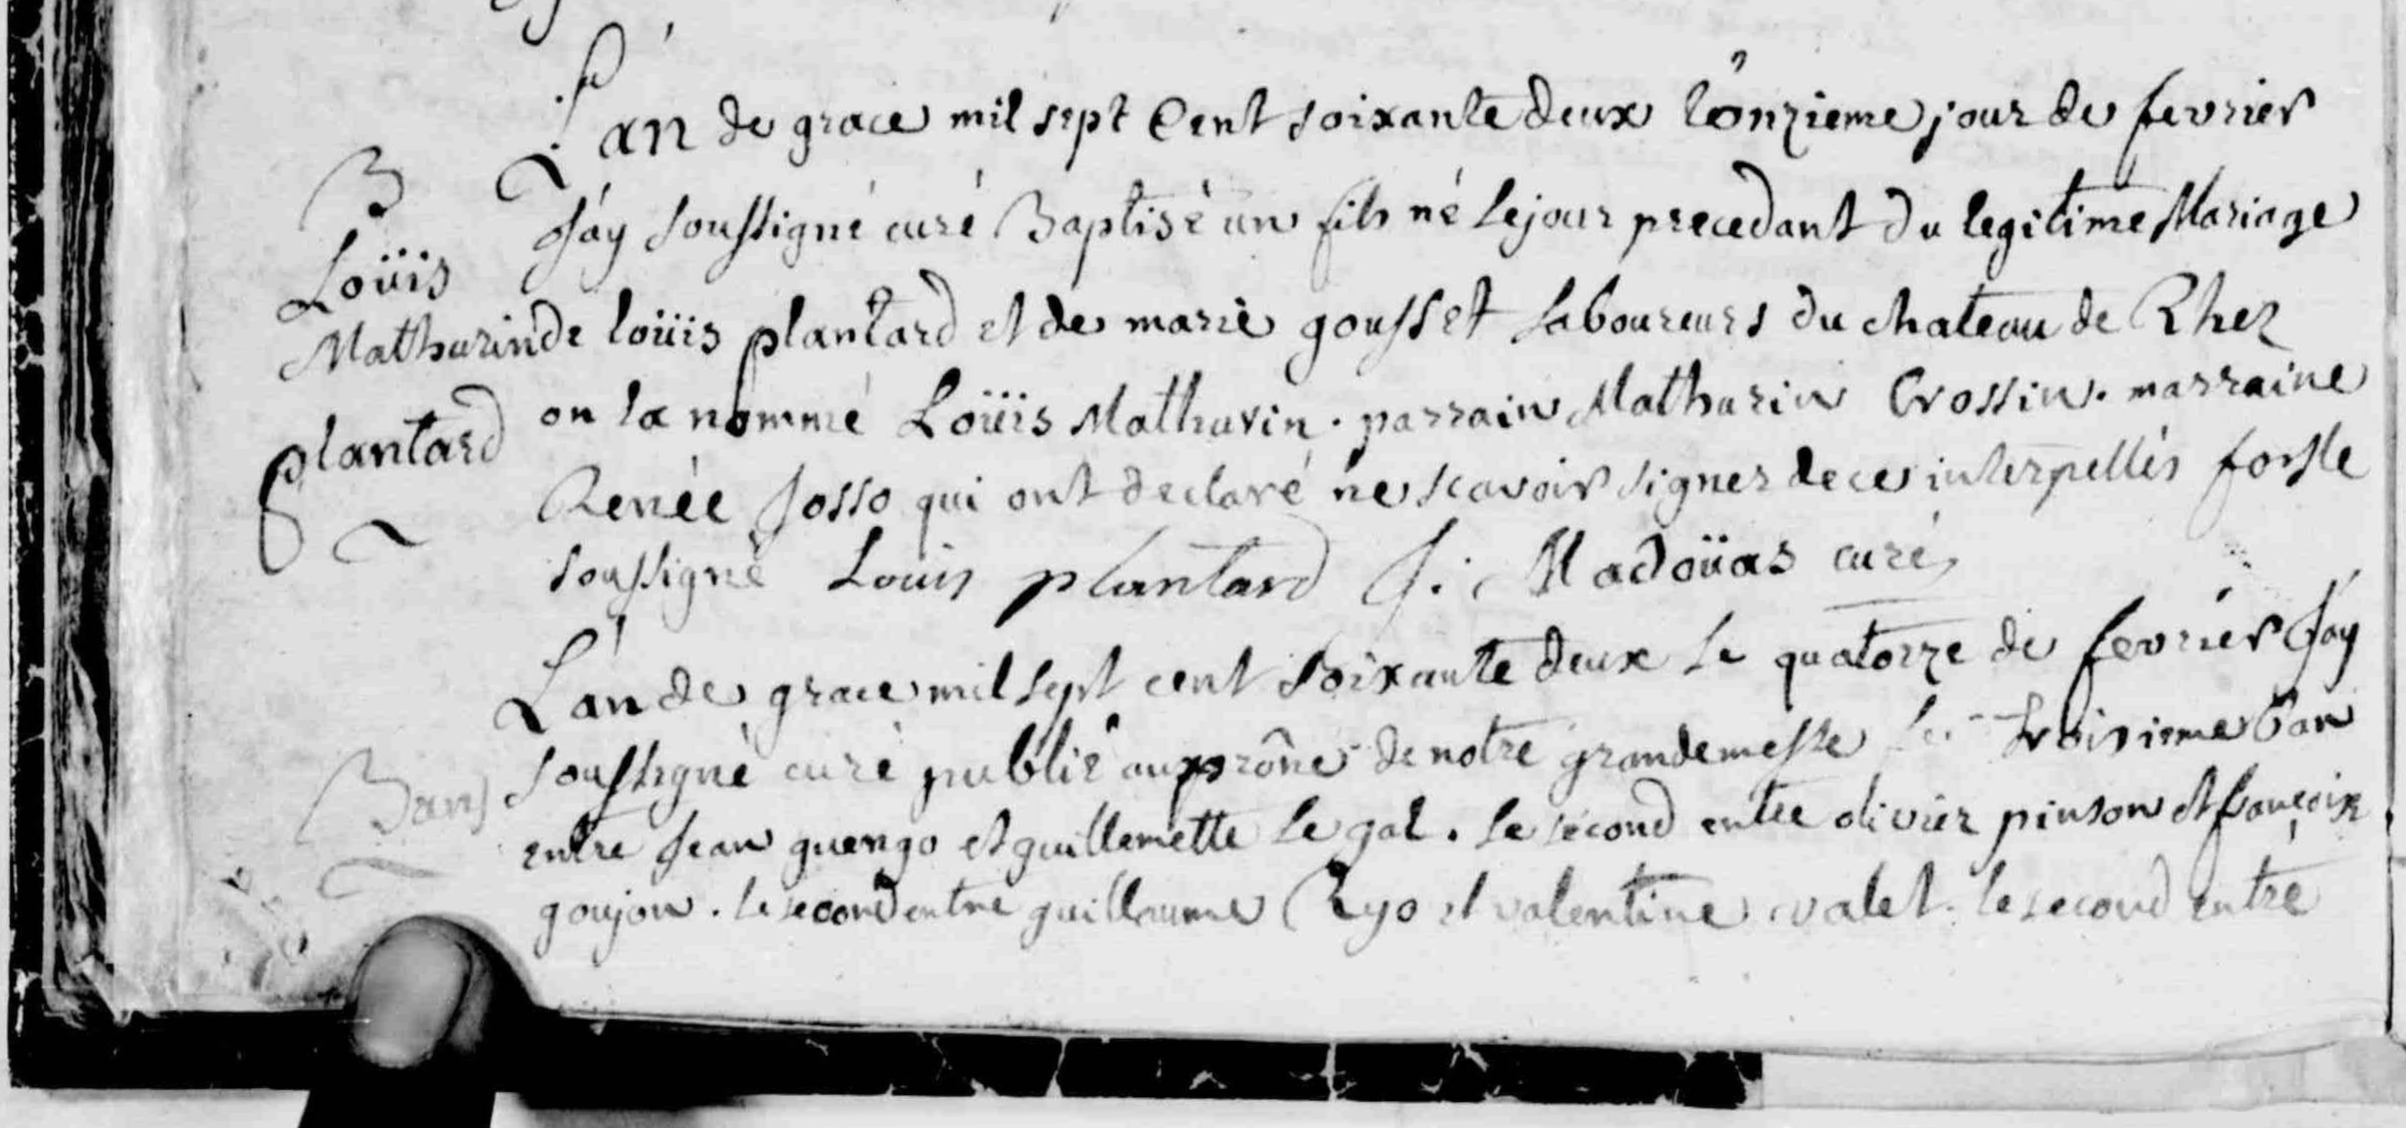 L'an de grace mil sept Cent soixante deux l'onzieme jour de fevrier
B
J'ay soussigné curé Baptisé un fils né le jour precedant du legitime Mariage
Loüis
Mathurin
de loüis plantard et de marie gousset laboureurs du chateau de Rhez
plantard
on la nommé Loüis Mathurin. parrain Mathurin Crossin. marraine
Renée Josso qui ont declaré ne scavoir signer de ce interpellés fors le
soussigné Louis plantard J. Madoüas curé
L'an de grace mil sept cent soixante deux le quatorze de fevrier J'ay
soussigné curé publié au prône de notre grande messe le troisieme ban
Bans
entre Jean guengo et guillemette le gal. le second entre olivier pinson et françoise
goujon. le second entre guillaume Ryo et valentine valet. le second entre